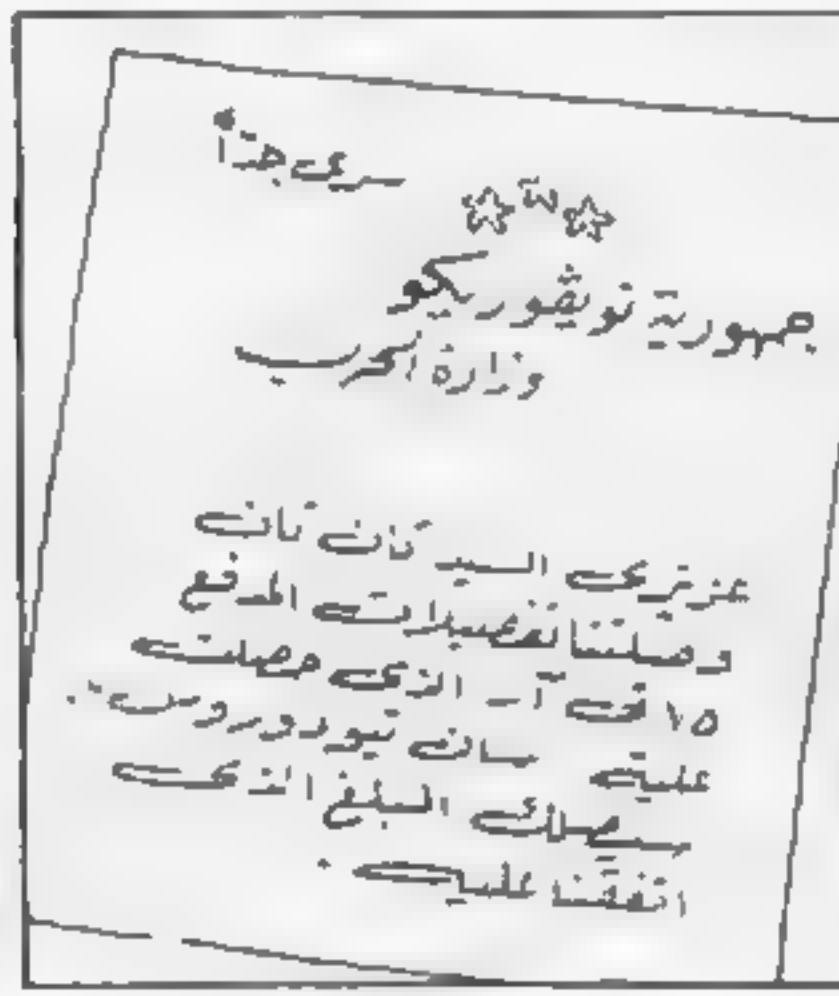 سرى جدّاً
جمهورية نويڤوريكو
وزارة الحرب
عزيزى السيد كان كان
وصلتنا تفصيلات المدفع
٧٥ تى آر الذى حصلت
عليه سان تيودوروس".
سيصلك المبلغ الذى
اتفقنا عليه .